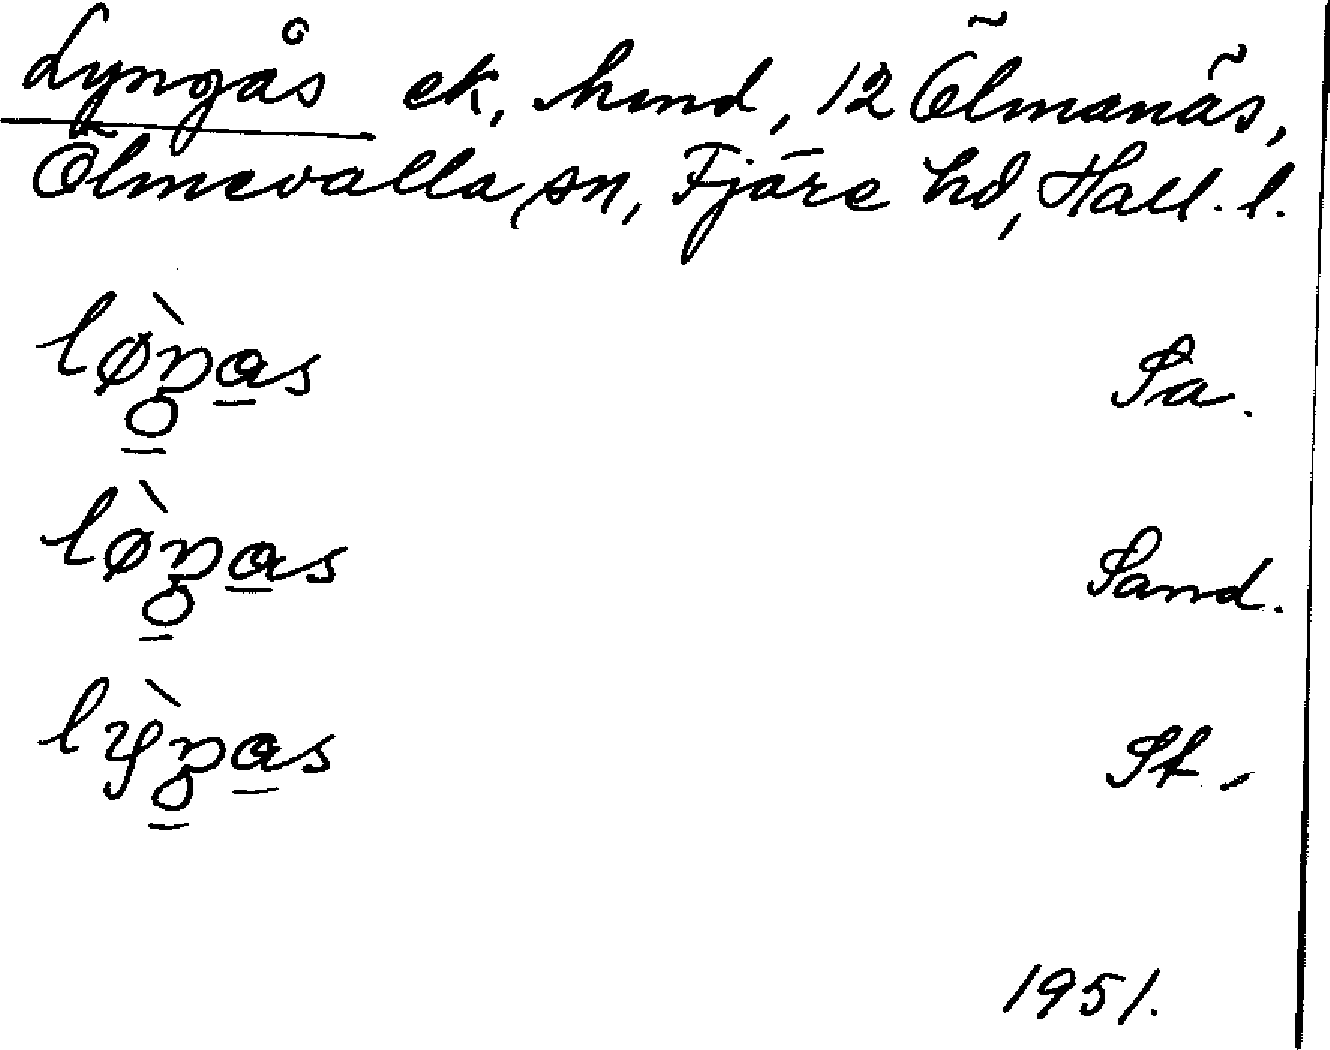 Lyngås ek, hmd, 12 Ölmanäs,
Ölmevalla sn, Fjäre hd, Hall. l.
lø̀ŋas Sa.
lø̀ŋas Sand.
lỳŋas St.
1951.